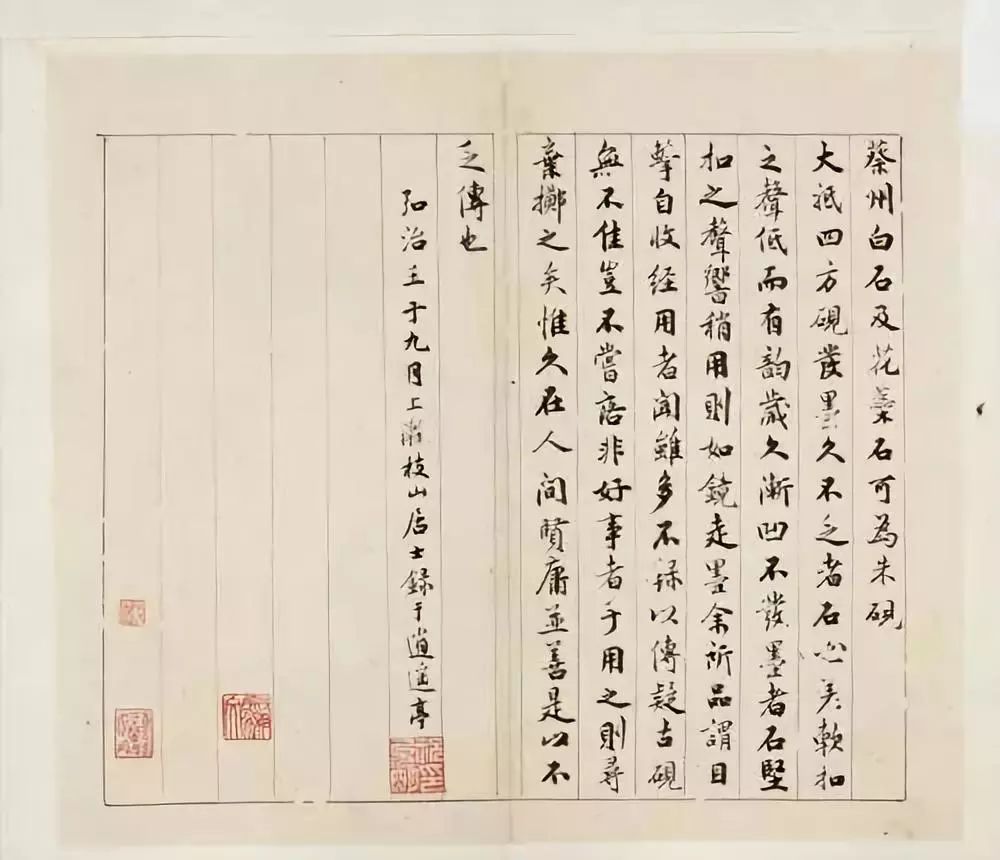 蔡州白石及花蘂石可為朱硯
大祗四方硯發墨久不乏者石必差軟扣
之聲低而有韵歲久漸凹不發墨者石堅
扣之聲響稍用則如鏡走墨余所品謂目
擊自收经用者闻雖多不録以傳疑古硯
無不佳豈不嘗落非好事者手用之則尋
棄擲之矣惟久在人间賢庸並善是以不
乏傳也
弘治壬子九月上澣枝山居士録于逍遥亭